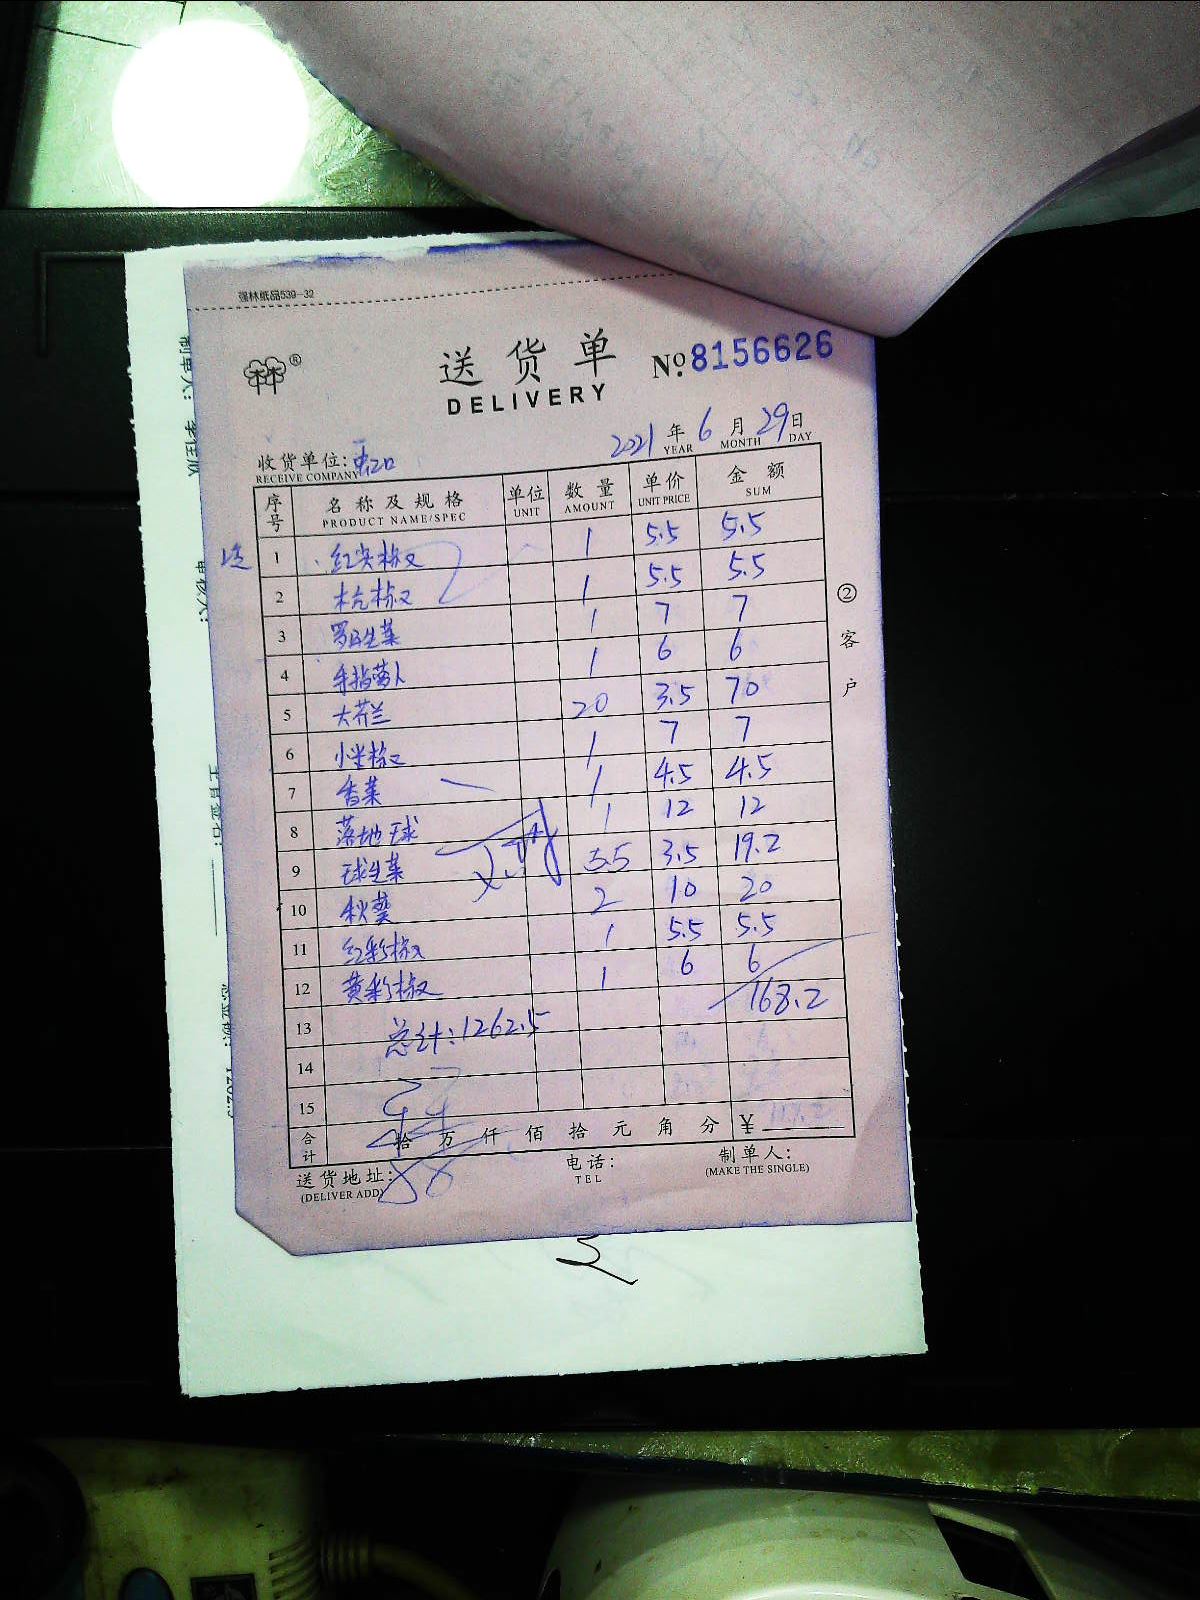 强林纸品539-32
林®
送货单
DELIVERY
No. 8156626
2021年6月29日
YEAR MONTH DAY
收货单位:
RECEIVE COMPANY
序号 名称及规格 单位 数量 单价 金额
PRODUCT NAME/SPEC UNIT AMOUNT UNIT PRICE SUM
1 红尖椒 1 5.5 5.5
2 杭椒 1 5.5 5.5
3 罗马生菜 1 7 7
4 手指萝卜 1 6 6
5 大芥兰 20 3.5 70
6 小米椒 1 7 7
7 香菜 1 4.5 4.5
8 落地球 1 12 12
9 球生菜 5.5 3.5 19.2
10 秋葵 2 10 20
11 红彩椒 1 5.5 5.5
12 黄彩椒 1 6 6
168.2
13 总计:1262.5
14
15
合计 拾万仟佰拾元角分 ¥
送货地址: 电话: 制单人:
(DELIVER ADD) TEL (MAKE THE SINGLE)
②客户
制单人:
审核人: